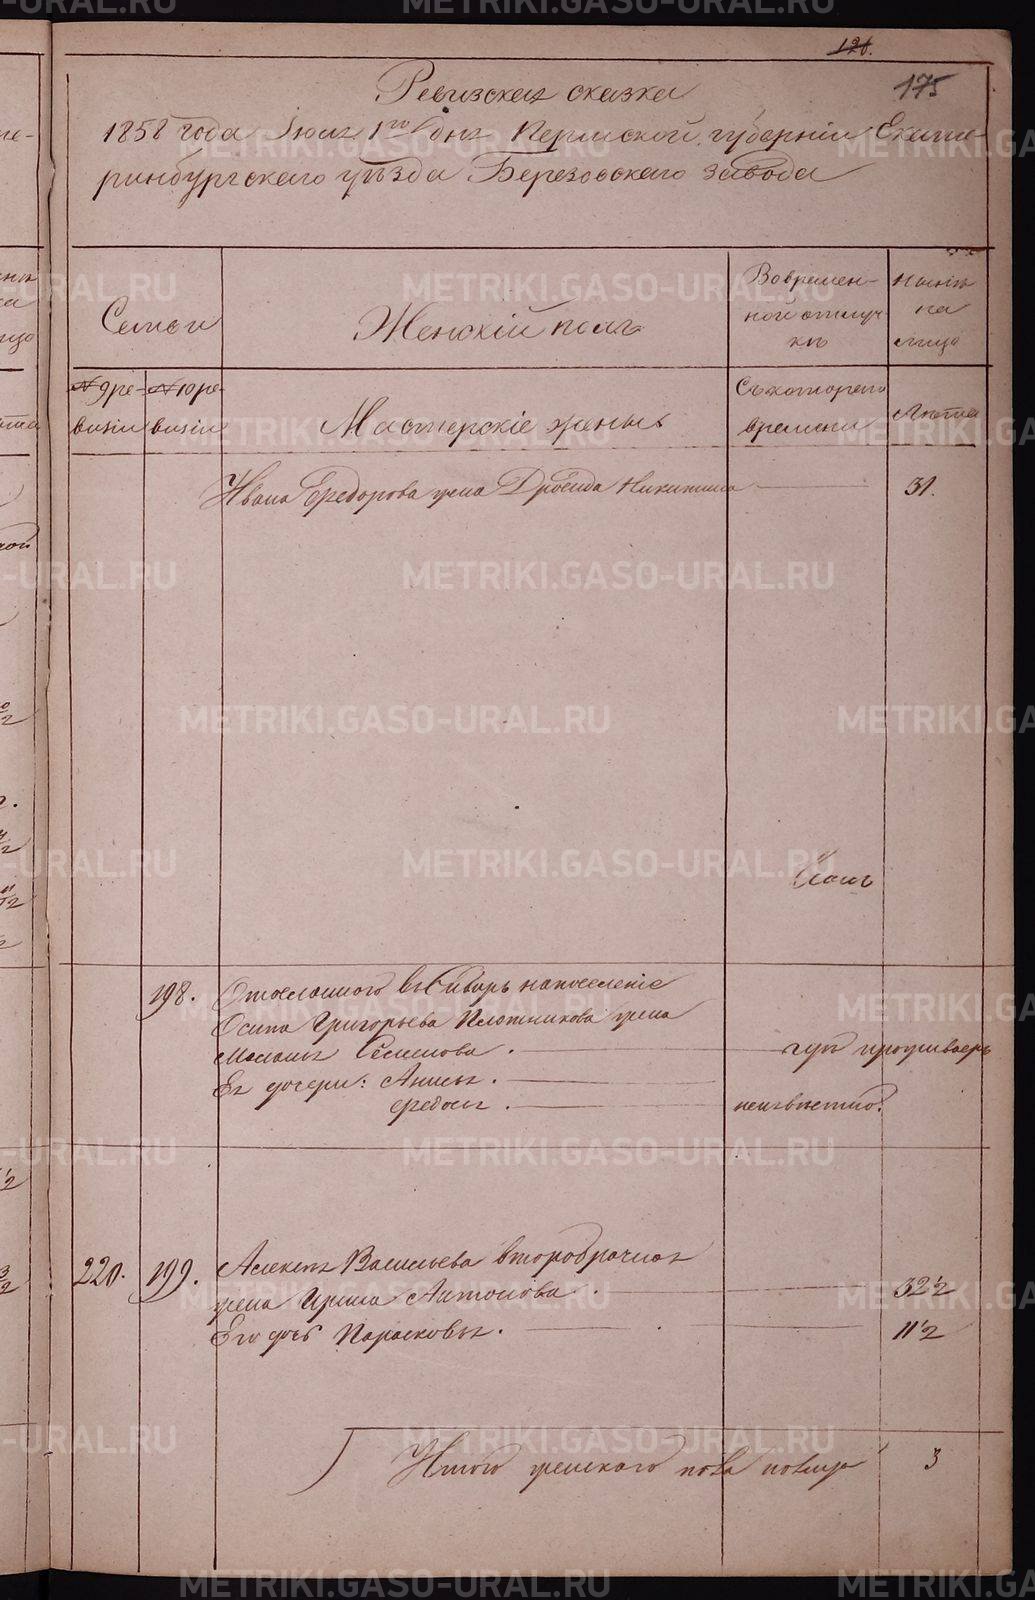 126.
175
Ревизская сказка
1858 года Июня 1го дня Пермской губернии Екате-
ринбургскаго уѣзда Березовскаго завода
Семьи
Женскій полъ
Во времен-
ной отлуч-
кѣ
Нынѣ
на
лицо
№ 9 ре-
визіи
№ 10 ре-
визіи
Мастерскіе жены
Съ котораго
времени
Лѣта
Ивана Федорова жена Дросида Никитина
31.
198.
Отосланнаго въ Сибирь на поселеніе
Осипа Григорьева Плотникова жена
Маланья Семенова.
гдѣ проживаетъ
Ея дочери: Анисья.
Федосья.
неизвѣстно.
220.
199.
Алексѣя Васильева второбрачная
жена Ирина Антонова.
32 1/2
Его дочь Парасковья.
11 1/2
Итого женскаго пола на лицо
3
METRIKI.GASO-URAL.RU